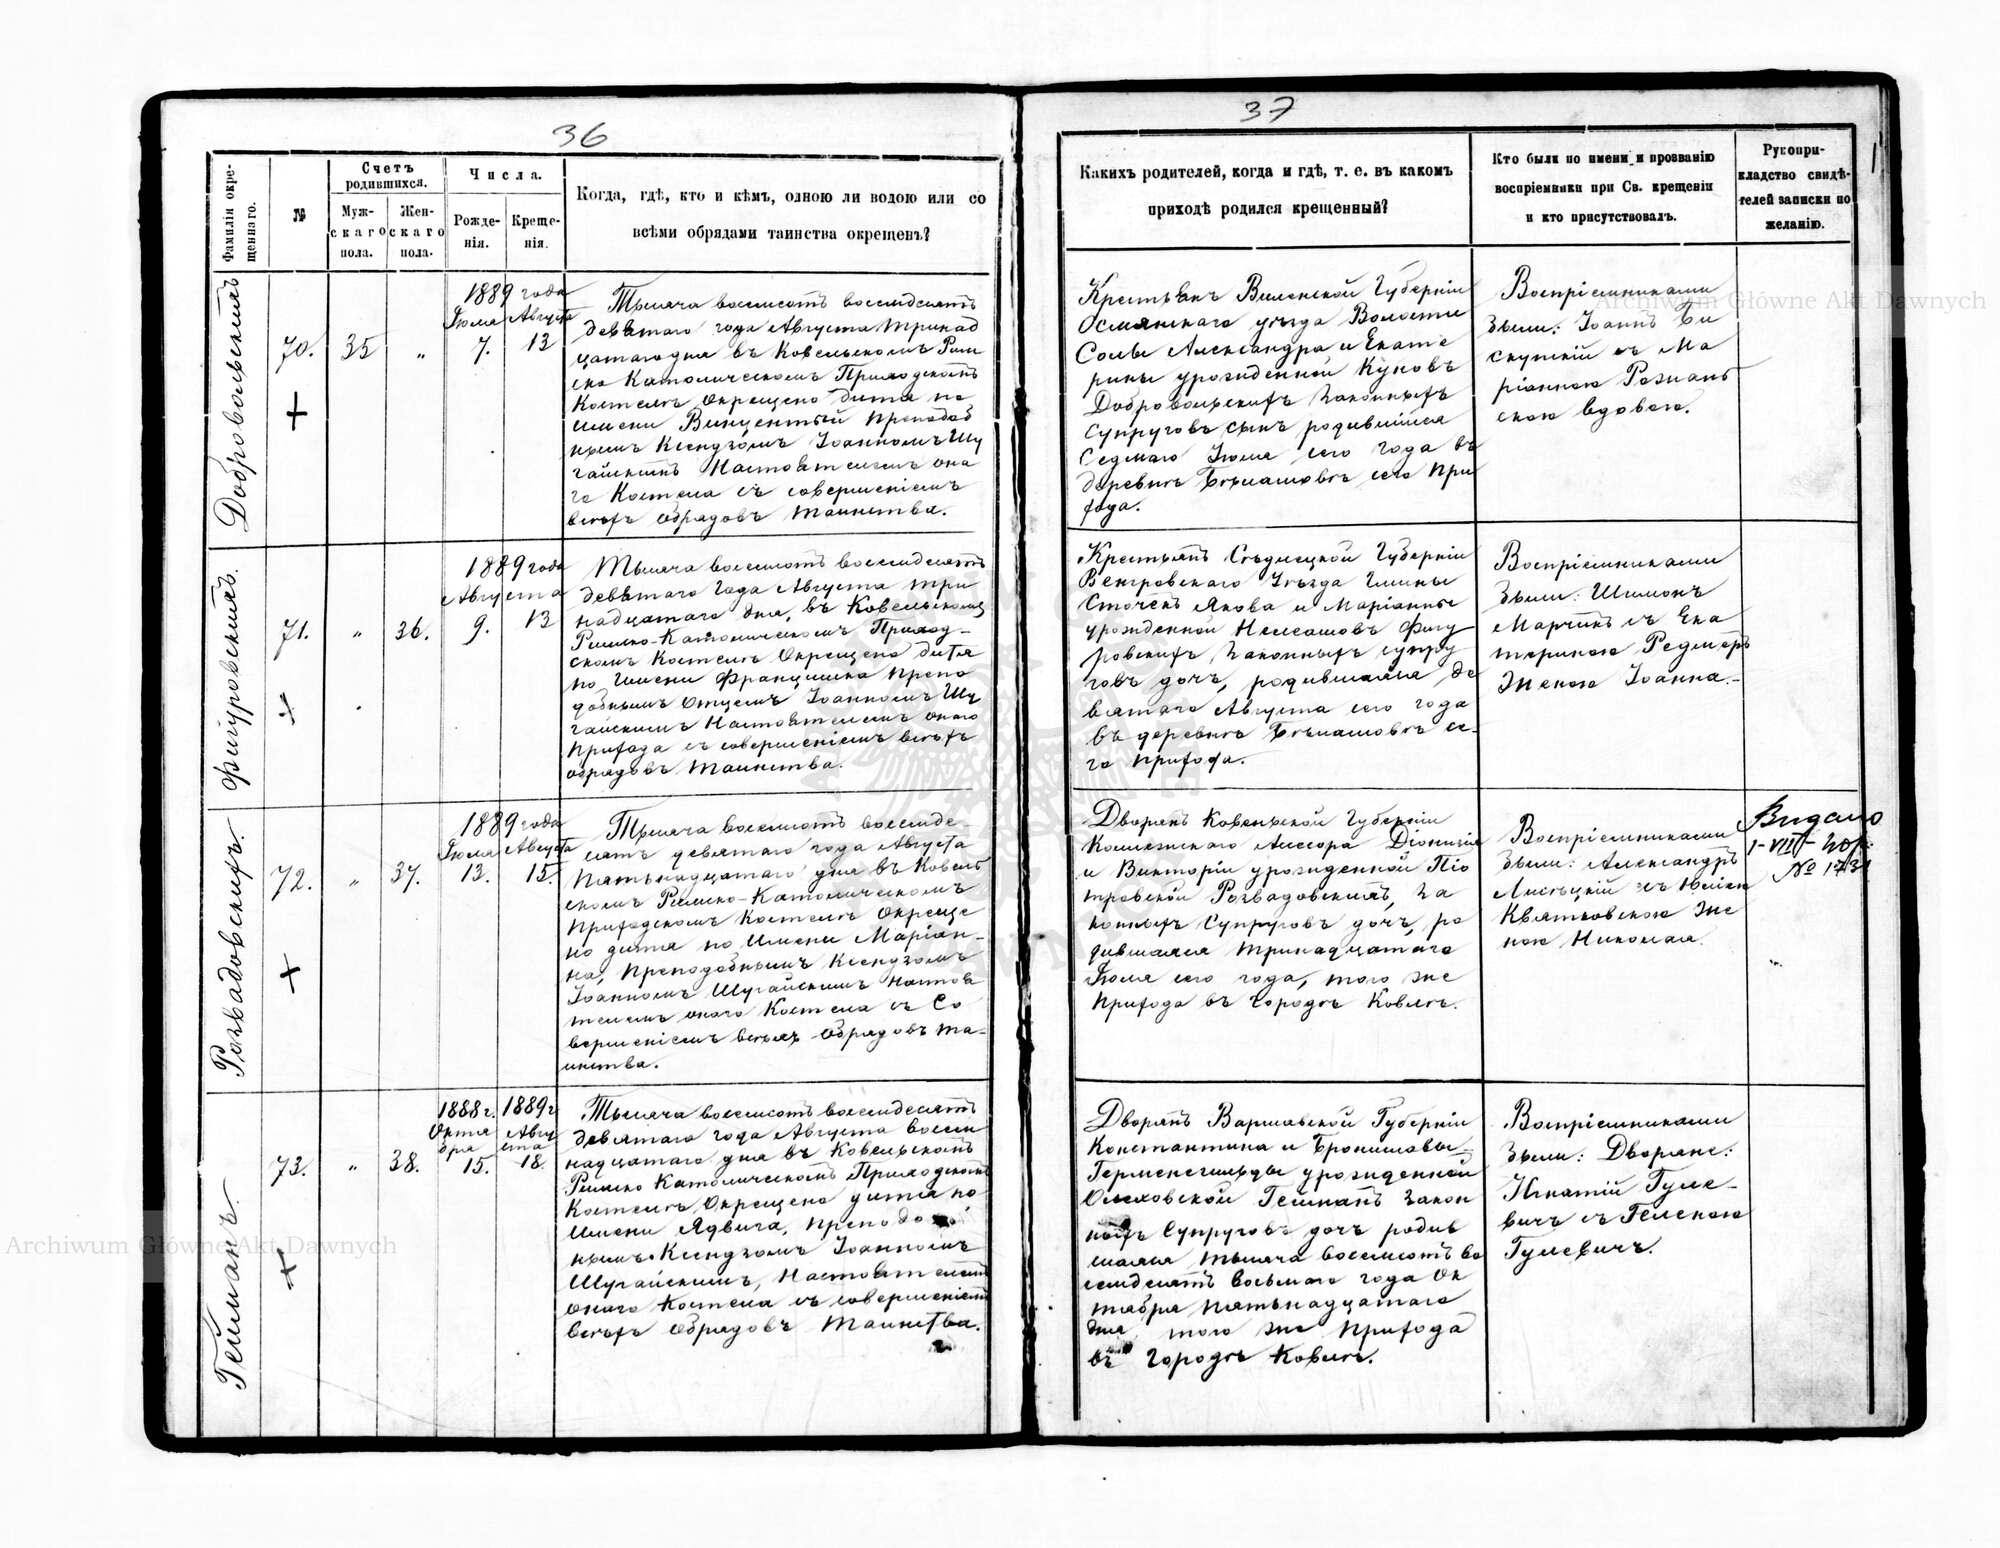 36
Фамилія окре-
щеннаго.
№
Счетъ
родившихся.
Муж-
скаго
пола.
Жен-
скаго
пола.
Числа.
Рожде-
нія.
Креще-
нія.
Когда, гдѣ, кто и кѣмъ, одною ли водою или со
всѣми обрядами таинства окрещенъ?
Добровольскій
70.
35
"
1889 года
Іюля Августа
7. 13
Тысяча восемсотъ восемдесятъ
девятаго года Августа тринад
цатаго дня въ Ковельскомъ Рим
ско Католическомъ Приходскомъ
Костелѣ окрещено дитя по
имени Винцентый преподоб
нымъ Ксендзомъ Іоанномъ Шу
гайскимъ Настоятелемъ она
го Костела съ совершеніемъ
всѣхъ обрядовъ таинства.
Фигуровскихъ.
71.
"
36.
1889 года
Августа
9. 13
Тысяча восемсотъ восемдесятъ
девятаго года Августа три
надцатаго дня, въ Ковельскомъ
Римско-Католическомъ Приход-
скомъ Костелѣ Окрещено дитя
по имени Францишка препо
добнымъ Отцемъ Іоанномъ Шу
гайскимъ Настоятелемъ онаго
прихода съ совершеніемъ всѣхъ
обрядовъ таинства.
Розвадовскихъ.
72.
"
37.
1889 года
Іюля Августа
13. 15.
Тысяча восемсотъ восемде-
сятъ девятаго года Августа
пятьнадцатаго дня въ Ковель
скомъ Римско-Католическомъ
Приходскомъ Костелѣ Окреще
но дитя по имени Маріан-
на, преподобнымъ Ксендзомъ
Іоанномъ Шугайскимъ настоя
телемъ онаго Костела съ Со
вершеніемъ всѣхъ обрядовъ та-
инства.
Гейманъ.
73.
"
38.
1888 г. 1889 г.
Октя Авгу
бря ста
15. 18.
Тысяча восемсотъ восемдесятъ
девятаго года Августа восем
надцатаго дня въ Ковельскомъ
Римско Католическомъ Приходскомъ
Костелѣ Окрещено дитя по
имени Ядвига, преподоб
нымъ Ксендзомъ Іоанномъ
Шугайскимъ, Настоятелемъ
онаго Костела съ совершеніемъ
всѣхъ обрядовъ таинства.
37
Какихъ родителей, когда и гдѣ, т. е. въ какомъ
приходѣ родился крещенный?
Кто были по имени и прозванію
воспріемники при Св. крещеніи
и кто присутствовалъ.
Рукопри-
кладство свидѣ-
телей записки по
желанію.
Крестьянъ Виленской Губерніи
Осмянскаго уѣзда Волости
Солы Александра и Екате
рины урожденной Куковъ
Добровольскихъ законныхъ
супруговъ сынъ родившійся
Седмаго Іюля сего года въ
деревнѣ сего при
хода.
Воспріемниками
были: Іоаннъ Би
скупскій съ Ма
ріанною Рознанъ
скою вдовою.
Крестьянъ Сѣдлецкой Губерніи
Венгровскаго Уѣзда Гмины
Сточекъ Якова и Маріанны
урожденной Фигу
ровскихъ, законныхъ супру
говъ дочь, родившаяся, де
вятаго Августа сего года
въ деревнѣ се-
го прихода.
Воспріемниками
были: Шимонъ
Марчикъ съ Ека
териною Редмеръ
женою Іоанна.-
Дворянъ Ковенской Губерніи
Колежскаго Ассесора Діонизія
и Викторіи урожденной Піо
тровской Розвадовскихъ, за
конныхъ Супруговъ дочь, ро
дившаяся тринадцатаго
Іюля сего года, того же
прихода въ городѣ Ковелѣ.
Воспріемниками
были: Александръ
Лисѣцкій съ Юліею
Квятковскою же
ною Николая.
Видано
1-VIII-20 р.
№ 1731
Дворянъ Варшавской Губерніи
Константина и Брониславы
Герменегильды урожденной
Ольховской Гейманъ закон
ныхъ Супруговъ дочь родив
шаяся тысяча восемсотъ во
семдесятъ восьмаго года Ок
тября пятьнадцатаго
дня, того же прихода
въ городѣ Ковелѣ.
Воспріемниками
были: Дворяне:
Игнатій Гуле-
вичъ съ Геленою
Гулевичъ.
Archiwum Główne Akt Dawnych
Archiwum Główne Akt Dawnych